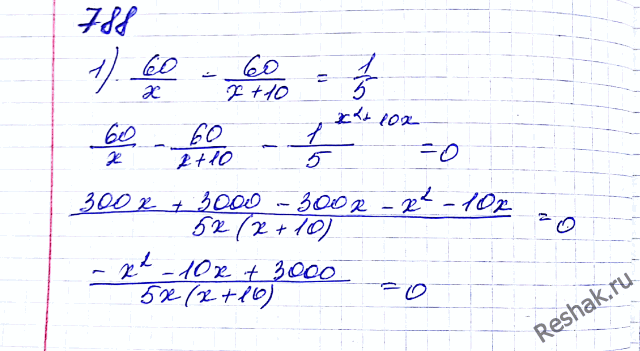 788
1). 60/x - 60/(x+10) = 1/5
60/x - 60/(x+10) - 1/5 x²+10x = 0
(300x + 3000 - 300x - x² - 10x)/(5x(x+10)) = 0
(-x² - 10x + 3000)/(5x(x+10)) = 0
Reshak.ru